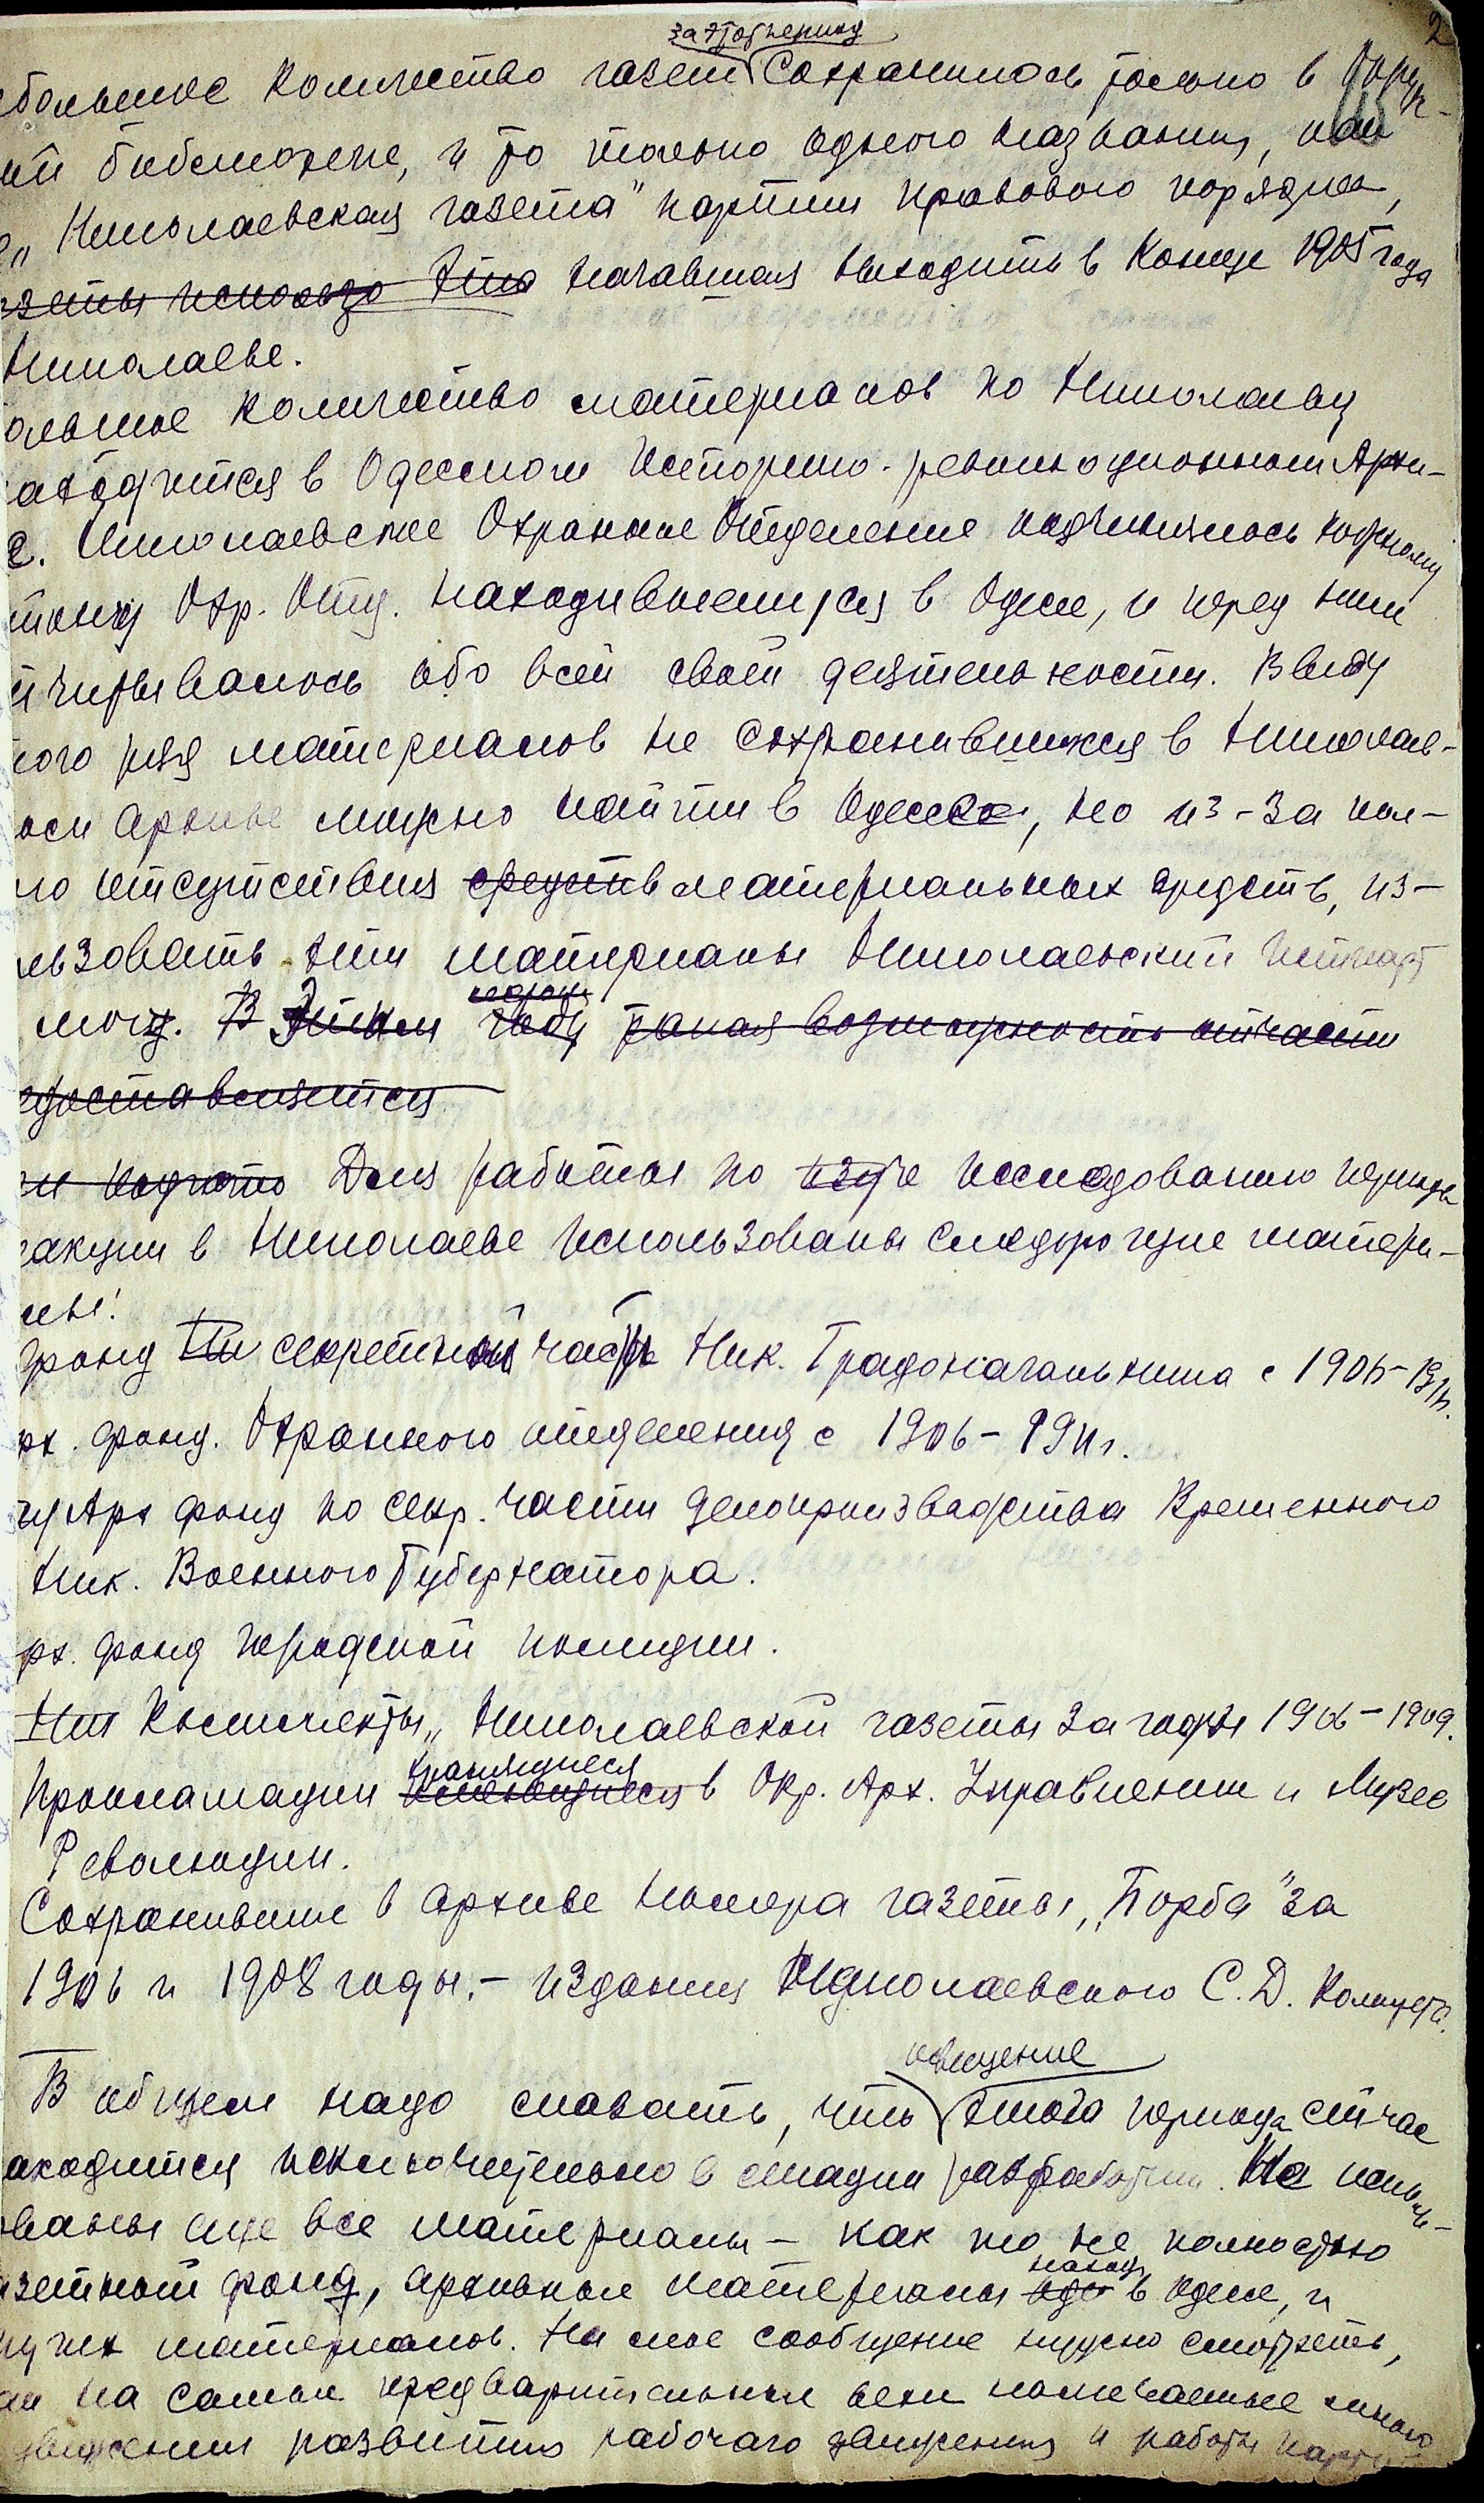 2
за этот период
большое количество газет сохранилось только в Окруж-
ой библиотеке, и то только одного названия, как
"Николаевская газета" партии правового порядка,
зеты использо Эта начавшая выходить в конце 1905 года
Николаеве.
ольшое количество материалов по Николаеву
аходится в Одесском Историко-революционном Архи-
е. Николаевское Охранное Отделение подчинялось Южному
йону Охр. Отд. находившемуся в Одессе, и перед ним
тчитывалось обо всей своей деятельности. Ввиду
того ряд материалов не сохранившихся в Николаев-
ком архиве можно найти в Одессе, но из-за пол-
го отсутствия средств материальных средств, из-
льзовать эти материалы Николаевский Истпарт
могу. В этом году такая возможность отчасти
едоставляется
Для работы по изуче исследованию периода
еакции в Николаеве использованы следующие матери-
лы:
фонд секретной части Ник. Градоначальника с 1906-
рх. фонд. Охранного отделения с 1906-1911г.
Арх фонд по секр. части делопроизводства Временного
Ник. Военного Губернатора.
рх. фонд городской полиции.
Комплекты "Николаевской газеты за годы 1906-1909.
хранящиеся
Прокламации имеющиеся в Окр. Арх. Управлении и Музее
Революции.
Сохранившие в архиве номера газеты, "Борба" за
1906 и 1908 годы.- издания Николаевского С.Д. Комитета.
освещение
В общем надо сказать, что этого периода сейчас
аходится исключительно в стадии разработки. Не исполь-
ваны еще все материалы - как то не полностью
наход
азетный фонд, архивные материалы в Одессе, и
угих материалов. На мое сообщение нужно смотреть,
ак на самые предварительные вехи намечаемые
движении развития рабочаго движения и работы парти